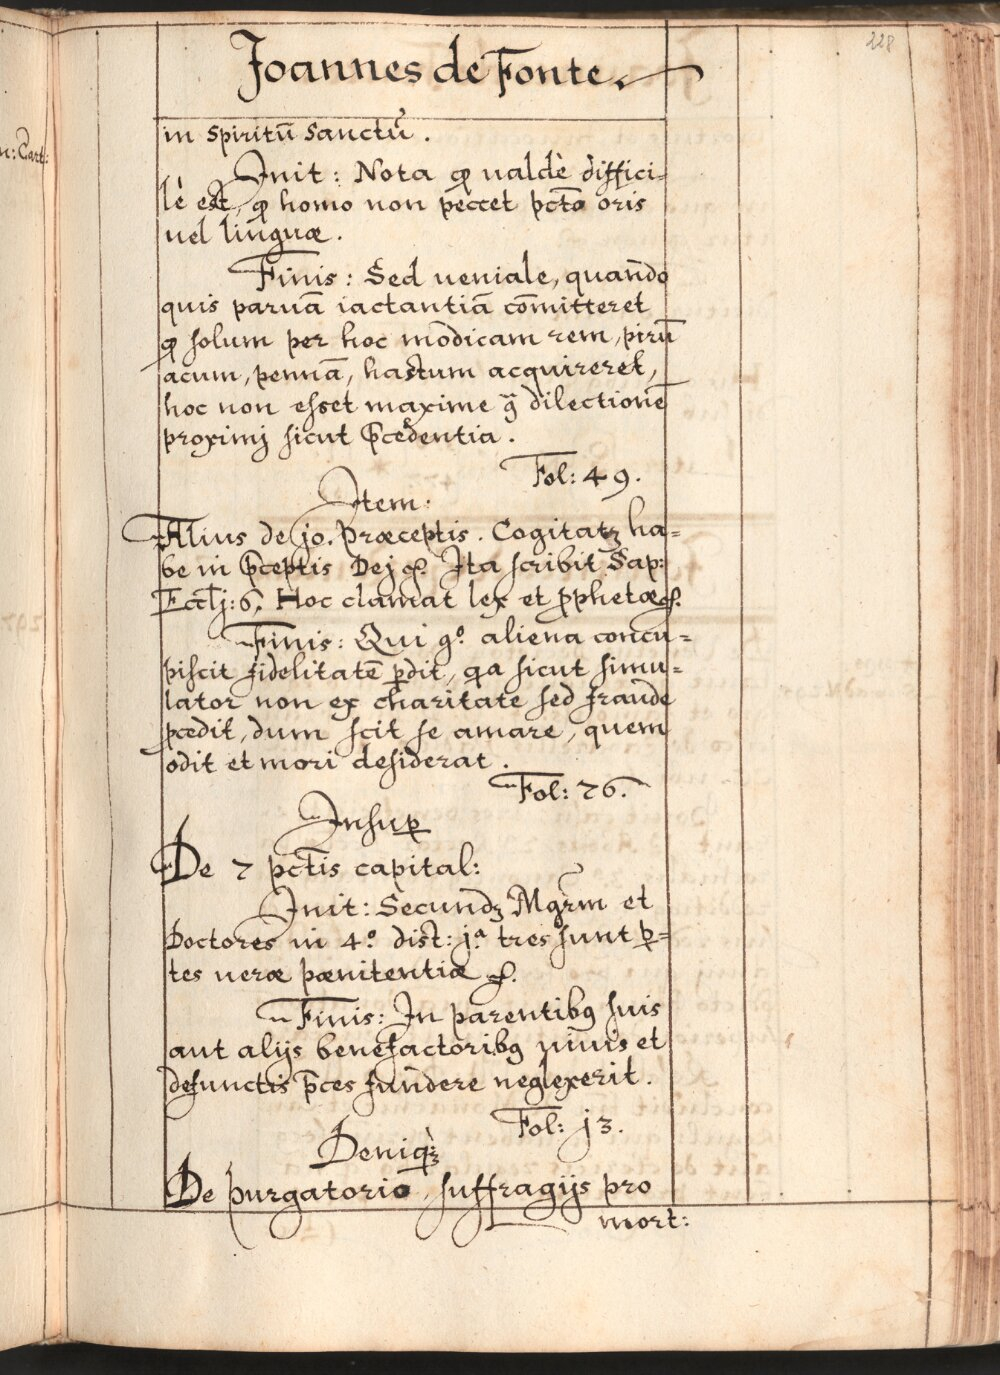 228
Joannes de Fonte.
n: Cart:
in spiritū sanctū.
Init: Nota ꝙ ualdè diffici-
lè est, ꝙ homo non peccet pctō oris
uel linguæ.
Finis: Sed ueniale, quando
quis paruā iactantiā cōmitteret
ꝙ solum per hoc modicam rem, pirū
acum, pennā, hastum acquireret,
hoc non esset maxime ꝯ̄ dilectionē
proximj sicut p̄cedentia.
Fol: 49.
Item.
Alius de jo. præceptis. Cogitatꝫ ha-
be in p̄ceptis Dej &. Ita scribit Sap:
Eccl̄j: 6. Hoc clamat lex et ꝓphetæ &.
Finis: Qui gº. aliena concu-
piscit fidelitatē ꝑdit, qa sicut simu-
lator non ex charitate sed fraude
ꝓcedit, dum scit se amare, quem
odit et mori desiderat.
Fol: 76.
Insuꝑ
De 7 pctīs capital:
Init: Secundꝫ Mgrm et
Doctores in 4º dist: jª tres sunt ꝑ-
tes ueræ pænitentiæ &.
Finis: In parentibꝯ suis
aut alijs benefactoribꝯ uiuis et
defunctis p̄ces fundere neglexerit.
Fol: j3.
Deniqꝫ
De purgatorio, suffragijs pro
mort: